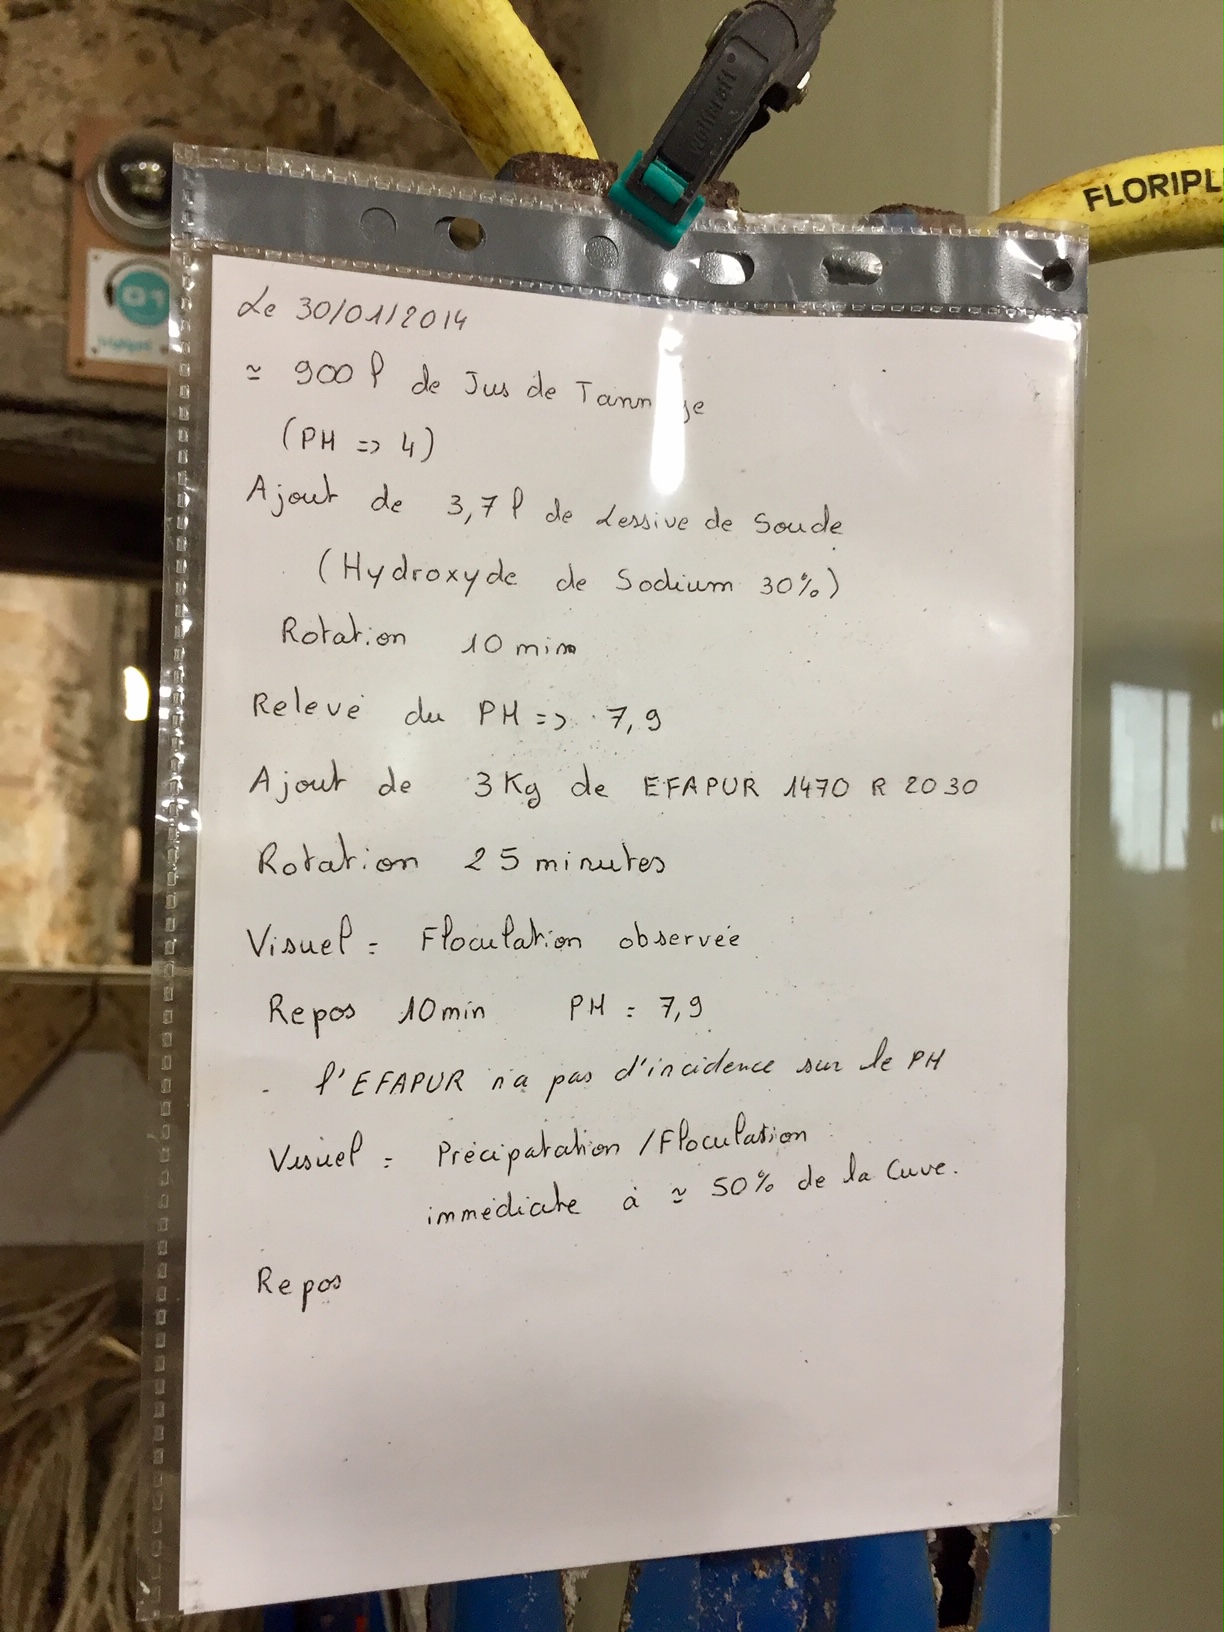 wolfcraft
FLORIPL
Le 30/01/2014
≃ 900 l de Jus de Tann ge
(PH => 4)
Ajout de 3,7 l de Lessive de Soude
(Hydroxyde de Sodium 30%)
Rotation 10 min
Relevé du PH => 7,9
Ajout de 3 Kg de EFAPUR 1470 R 2030
Rotation 25 minutes
Visuel = Floculation observée
Repos 10 min PH = 7,9
- l'EFAPUR n'a pas d'incidence sur le PH
Visuel = Précipatation / Floculation
immédiate à ≃ 50% de la Cuve.
Repos